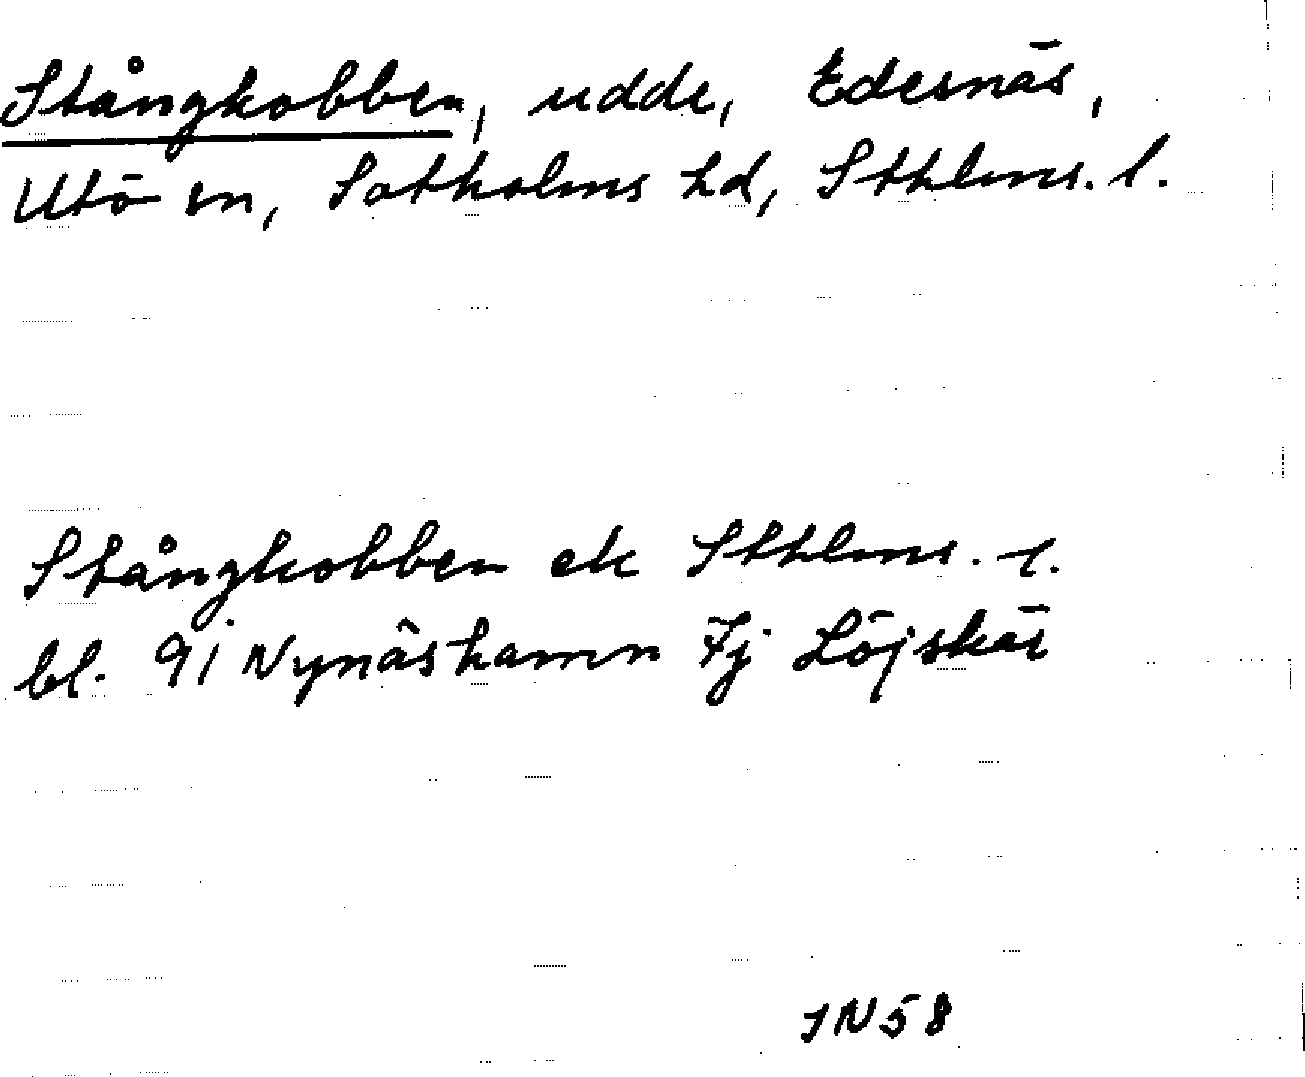 Stångkobben, udde, Edesnäs,
Utö sn, Sotholms hd, Sthlms. l.
Stångkobben ek Sthlms. l.
bl. 91 Nynäshamn 7j Löjskär
JN58